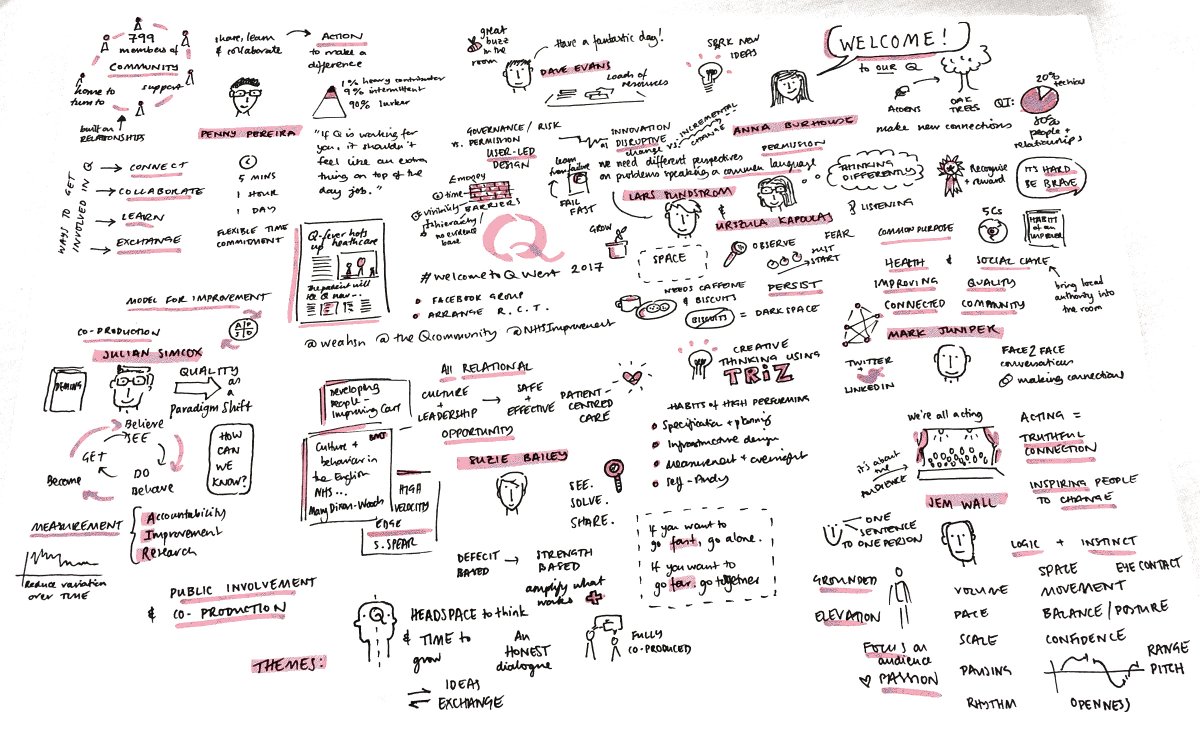 799
members of
COMMUNITY
come to
turn to
support
built on
RELATIONSHIPS
share, learn
& collaborate
ACTION
to make a
difference
1% heavy contributor
9% intermittent
90% lurker
PENNY PEREIRA
"If Q is working for
you, it shouldn't
feel like an extra
thing on top of the
day job."
WAYS TO GET
INVOLVED IN Q
CONNECT
COLLABORATE
LEARN
EXCHANGE
5 MINS
1 HOUR
1 DAY
FLEXIBLE TIME
COMMITMENT
great
buzz
in the
room
Have a fantastic day!
DAVE EVANS
Loads of
resources
GOVERNANCE / RISK
vs. PERMISSION
USER-LED
DESIGN
£ money
time
visibility
hierarchy /
BARRIERS
INNOVATION
DISRUPTIVE
change vs.
INCREMENTAL
CHANGE
learn
from failure
FAIL
FAST
SPARK NEW
IDEAS
WELCOME!
to OUR Q
ANNA BURHOUSE
ACORNS
OAK
TREES
make new connections
QI:
20%
technical
80%
people +
relationships
PERMISSION
we need different perspectives
on problems speaking a common language
LARS SUNDSTROM
&
URSZULA KAPOULAS
THINKING
DIFFERENTLY
LISTENING
Recognise
+ reward
IT'S HARD
BE BRAVE
GROW
SPACE
OBSERVE
FEAR
JUST
START
PERSIST
NEEDS CAFFEINE
& BISCUITS
BISCUITS = DARK SPACE
COMMON PURPOSE
5Cs
HABITS
of an
IMPROVER
HEALTH & SOCIAL CARE
IMPROVING QUALITY
CONNECTED COMMUNITY
bring local
authority into
the room
MARK JUNIPER
TWITTER
+
LINKEDIN
FACE 2 FACE
conversations
making connections
Q-fever hots
up healthcare
The patient will
see Q now...
Q
#welcometoQWest 2017
FACEBOOK GROUP
ARRANGE R.C.T.
@weahsn @theQcommunity @NHSImprovement
MODEL FOR IMPROVEMENT
A P
S D
CO-PRODUCTION
JULIAN SIMCOX
DEMING
QUALITY
as
a
Paradigm Shift
Believe
SEE
GET
DO
Become
Behave
HOW
CAN
WE
KNOW?
MEASUREMENT
Accountability
Improvement
Research
Reduce variation
over TIME
PUBLIC INVOLVEMENT
& CO-PRODUCTION
Developing
People -
Improving Care
Culture +
behaviour in
the English
NHS...
Mary Dixon-Woods
HIGH
VELOCITY
EDGE
S. SPEAR
All RELATIONAL
CULTURE
+
LEADERSHIP
SAFE
+
EFFECTIVE
PATIENT
CENTRED
CARE
OPPORTUNITY
SUZIE BAILEY
SEE.
SOLVE.
SHARE.
DEFICIT
BASED
STRENGTH
BASED
amplify what
works
CREATIVE
THINKING USING
TRIZ
HABITS OF HIGH PERFORMING
Specification + planning
Infrastructure design
Measurement + oversight
Self-study
If you want to
go fast, go alone.
If you want to
go far, go together
we're all acting
it's about
the
AUDIENCE
ACTING =
TRUTHFUL
CONNECTION
INSPIRING PEOPLE
TO CHANGE
JEM WALL
ONE
SENTENCE
TO ONE PERSON
LOGIC + INSTINCT
GROUNDED
ELEVATION
FOCUS on
audience
PASSION
VOLUME
PACE
SCALE
PAUSING
RHYTHM
SPACE
EYE CONTACT
MOVEMENT
BALANCE / POSTURE
CONFIDENCE
RANGE
PITCH
OPENNESS
THEMES:
Q
HEADSPACE to think
& TIME to
grow
An
HONEST
dialogue
IDEAS
EXCHANGE
FULLY
CO-PRODUCED